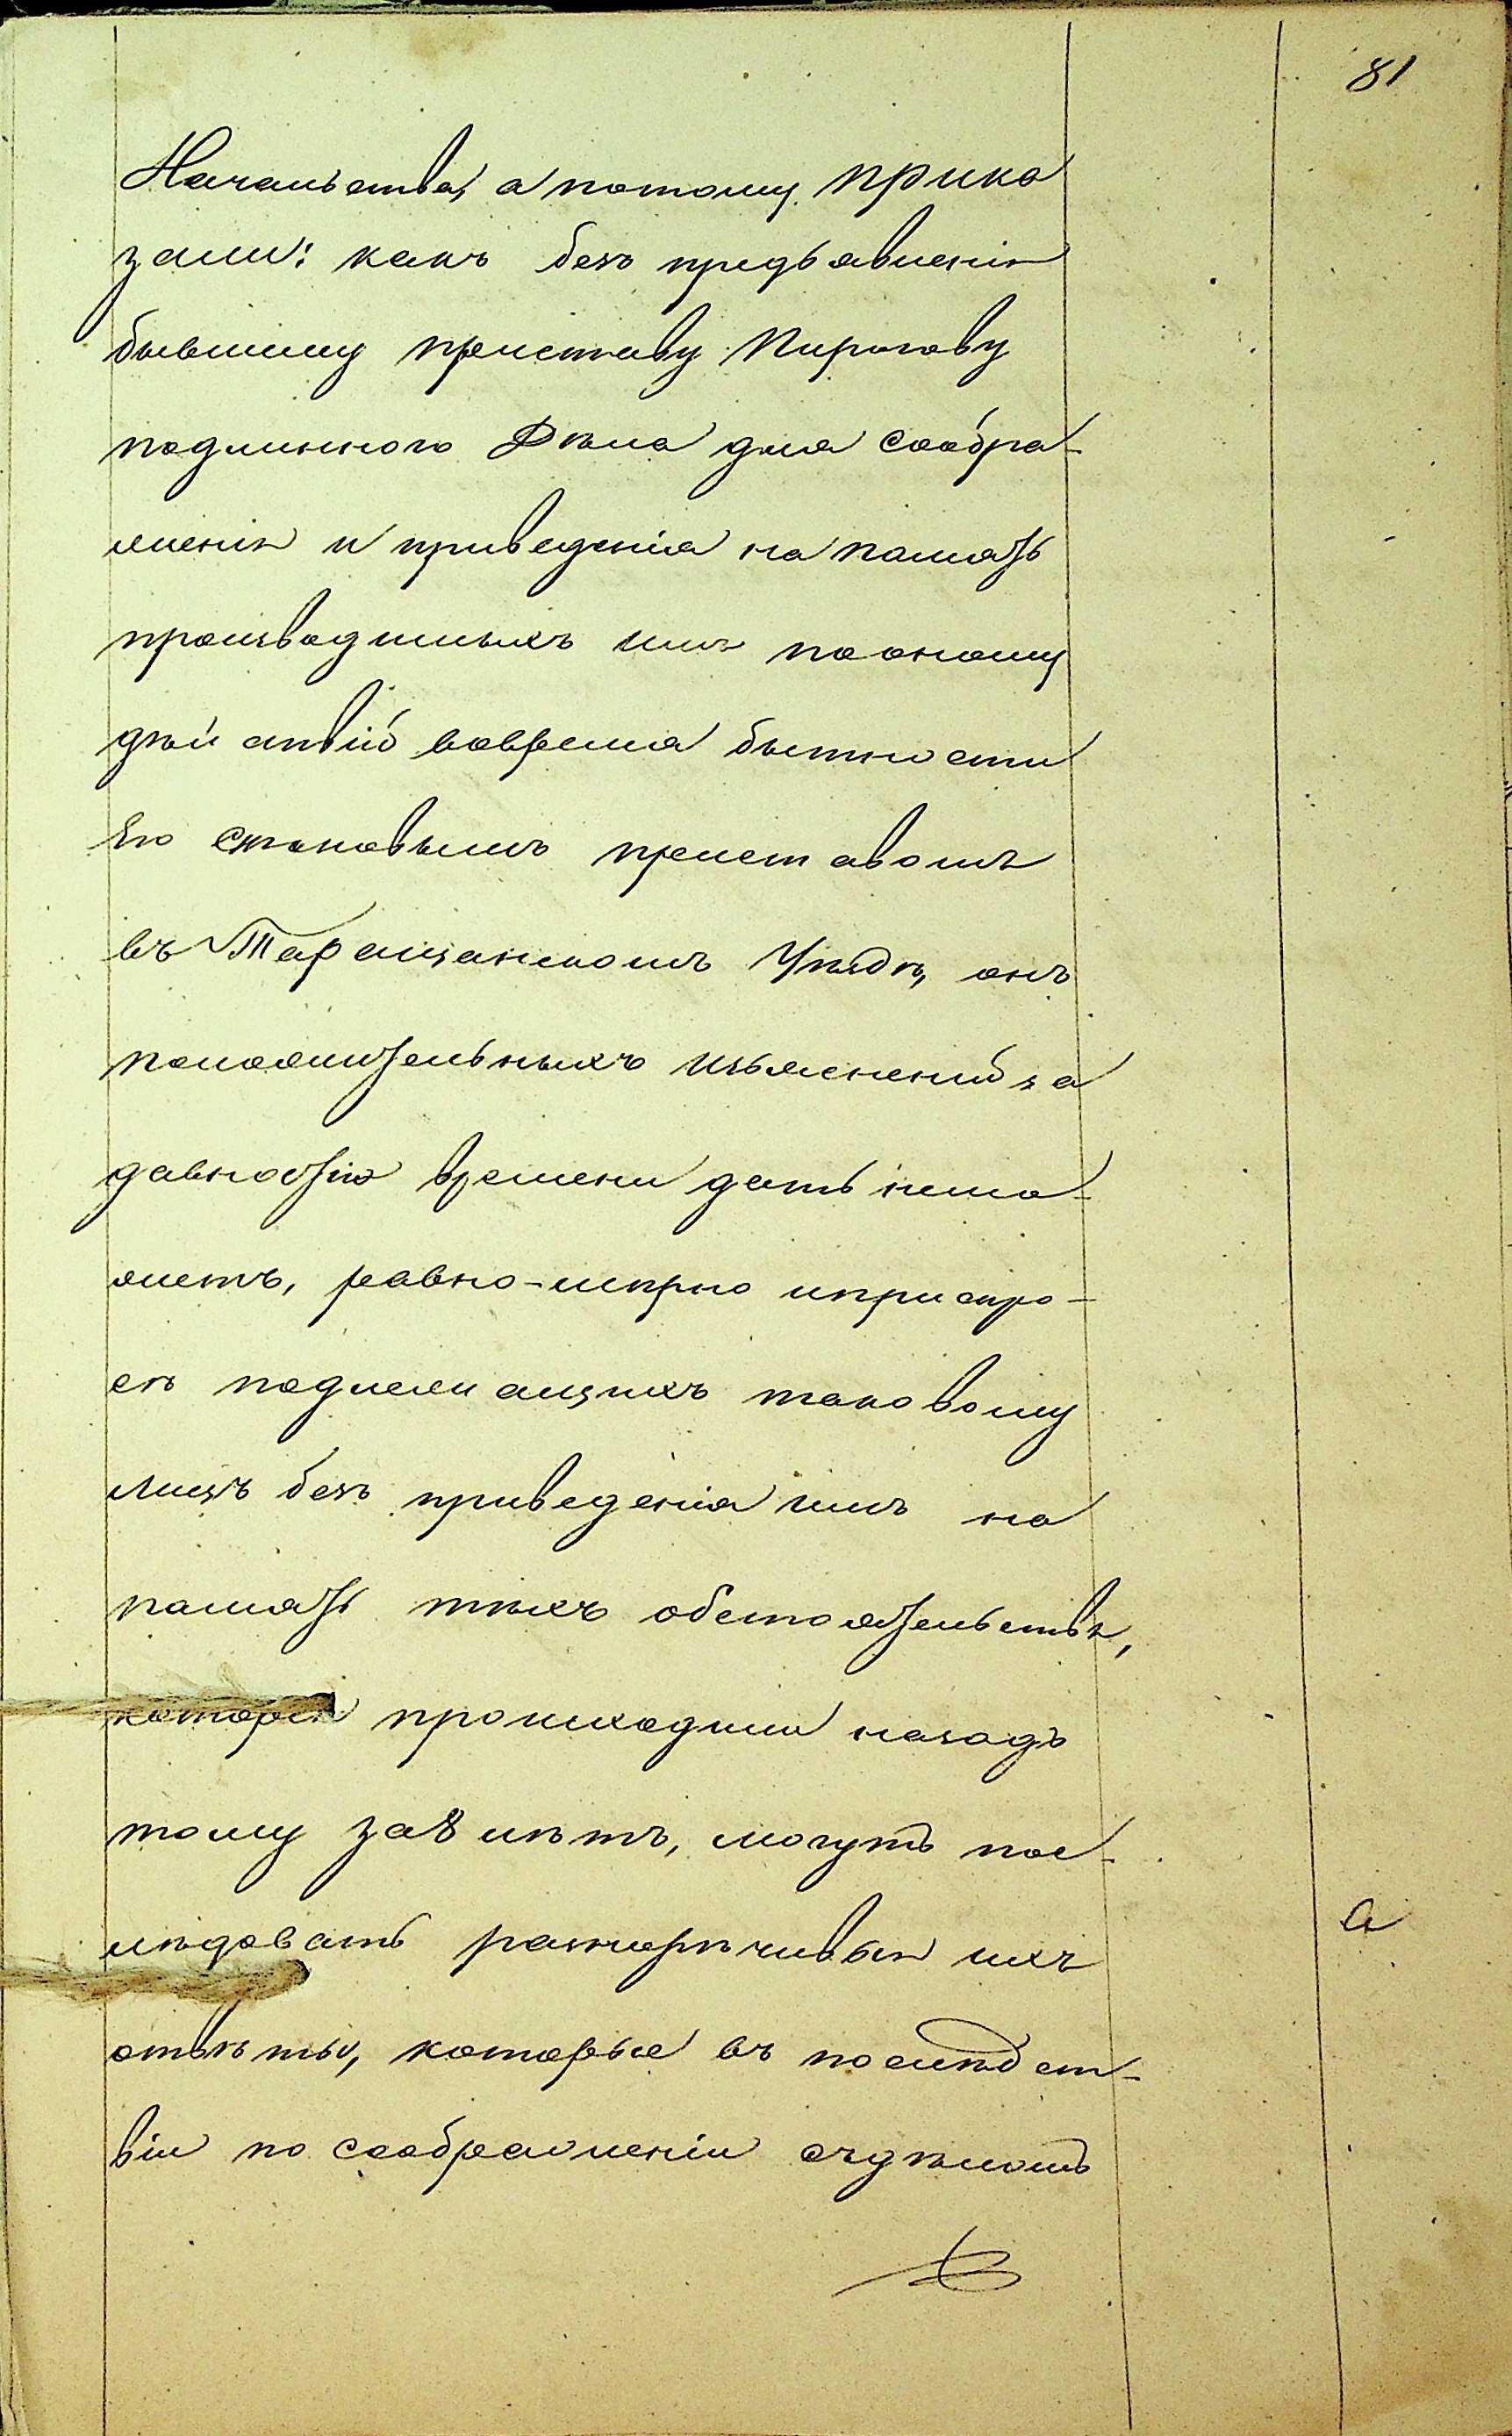 81
Начальства, а потому прика
зали: какъ безъ предъявленія
бывшему приставу Пирогову
подлиннаго Дѣла для сообра-
женія и приведенія на память
производимыхъ имъ по оному
дѣйствій вовремя бытности
Его становымъ приставомъ
въ Таращанскомъ Уѣздѣ, онъ
положительныхъ изъясненій за
давностію времени дать немо-
жетъ, равно-мѣрно и при спро-
сѣ подлежащихъ таковому
лицъ безъ приведенія имъ на
память тѣхъ обстоятельствъ,
которыя происходили назадъ
тому за 8 лѣтъ, могутъ пос-
лѣдовать разнорѣчивыя ихъ
отвѣты, которые въ послѣдст-
віи по соображеніи съ дѣломъ